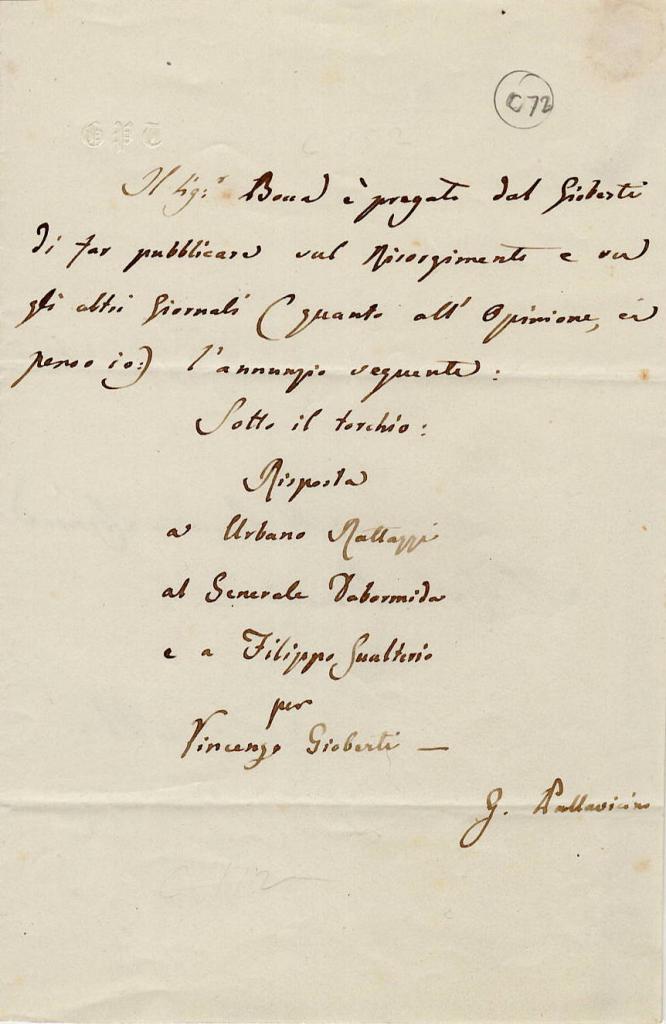 C72
GPT
Il Sig:r Bocca è pregato dal Gioberti
di far pubblicare sul Risorgimento e su
gli altri Giornali (quanto all' Opinione, ci
penso io:) l'annunzio seguente:
Sotto il torchio:
Risposta
a Urbano Rattazzi
al Generale Dabormida
e a Filippo Gualterio
per
Vincenzo Gioberti —
G. Pallavicino